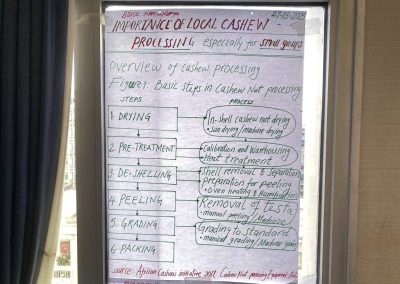 IMPORTANCE OF LOCAL CASHEW
PROCESSING especially for small groups
Overview of cashew processing
Figure 1: Basic steps in Cashew Nut processing
STEPS
PROCESS
1. DRYING
In-shell cashew nut drying
• sun drying/machine drying
2. PRE-TREATMENT
Calibration and Warehousing
Heat treatment
3. DE-SHELLING
Shell removal & separation
preparation for peeling
• Oven heating & Humification
4. PEELING
Removal of testa
• manual peeling/Machine
5. GRADING
Grading to standard
• manual grading/Machine
6. PACKING
source: African Cashew initiative 2012, Cashew Nut